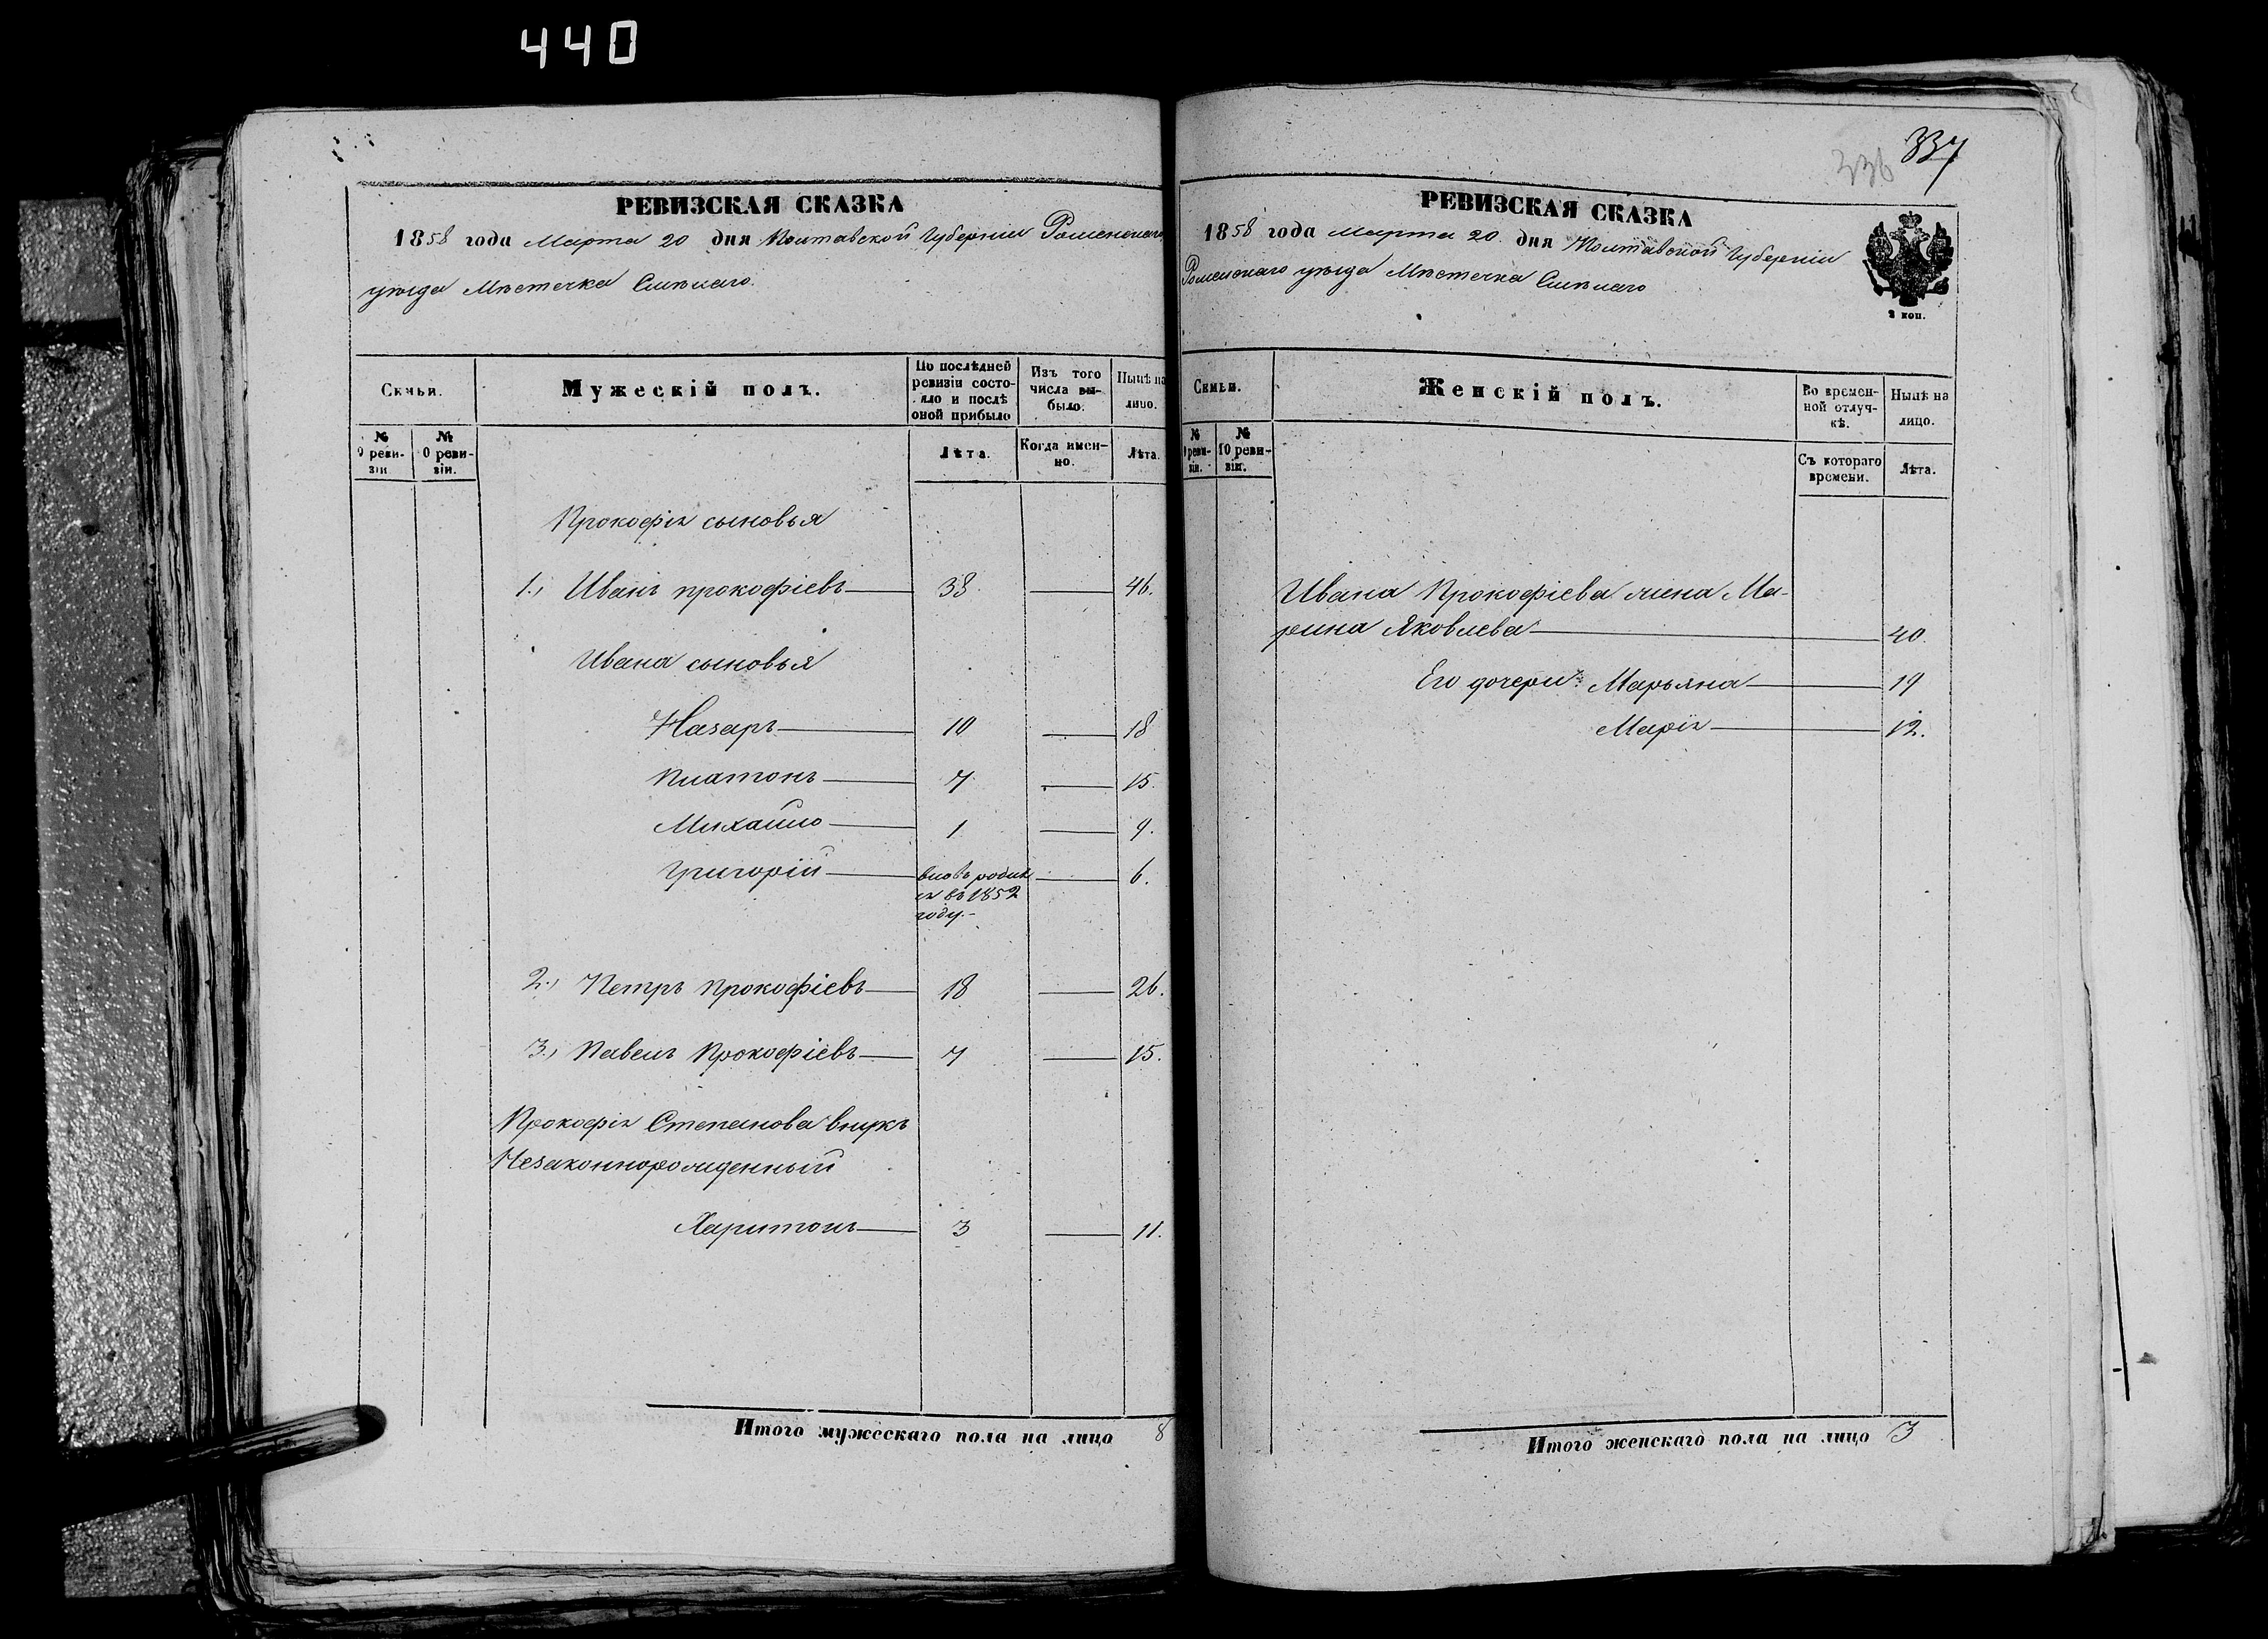 440
РЕВИЗСКАЯ СКАЗКА
1858 года Марта 20 дня Полтавской Губерніи Роменскаго
уѣзда Мѣстечка Смѣлаго.
Семьи.
Мужескій полъ.
По послѣдней ревизіи состояло и послѣ оной прибыло
Изъ того числа выбыло.
Нынѣ на лицо.
№ 9 ревизіи.
№ 0 ревизіи.
Лѣта.
Когда именно.
Лѣта.
Прокофія сыновья
1., Иванъ прокофіевъ 38 46.
Ивана сыновья
Назаръ 10 18
Платонъ 7 15.
Михайло 1 9.
Григорій вновь родил 6.
ся въ 1852
году.-
2., Петръ Прокофіевъ 18 26.
3., Павелъ Прокофіевъ 7 15.
Прокофія Степанова внукъ
Незаконнорожденный
Харитонъ 3 11.
Итого мужескаго пола на лицо 8
336 337
РЕВИЗСКАЯ СКАЗКА
1858 года Марта 20. дня Полтавской Губерніи
Роменскаго уѣзда Мѣстечка Смѣлаго
3 коп.
Семьи.
Женскій полъ.
Во временной отлучкѣ.
Нынѣ на лицо.
№ 9 ревизіи.
№ 10 ревизіи.
Съ котораго времени.
Лѣта.
Ивана Прокофіева жена Ма-
рина Яковлева 40.
Его дочери: Марьяна 19
Марія 12.
Итого женскаго пола на лицо 3